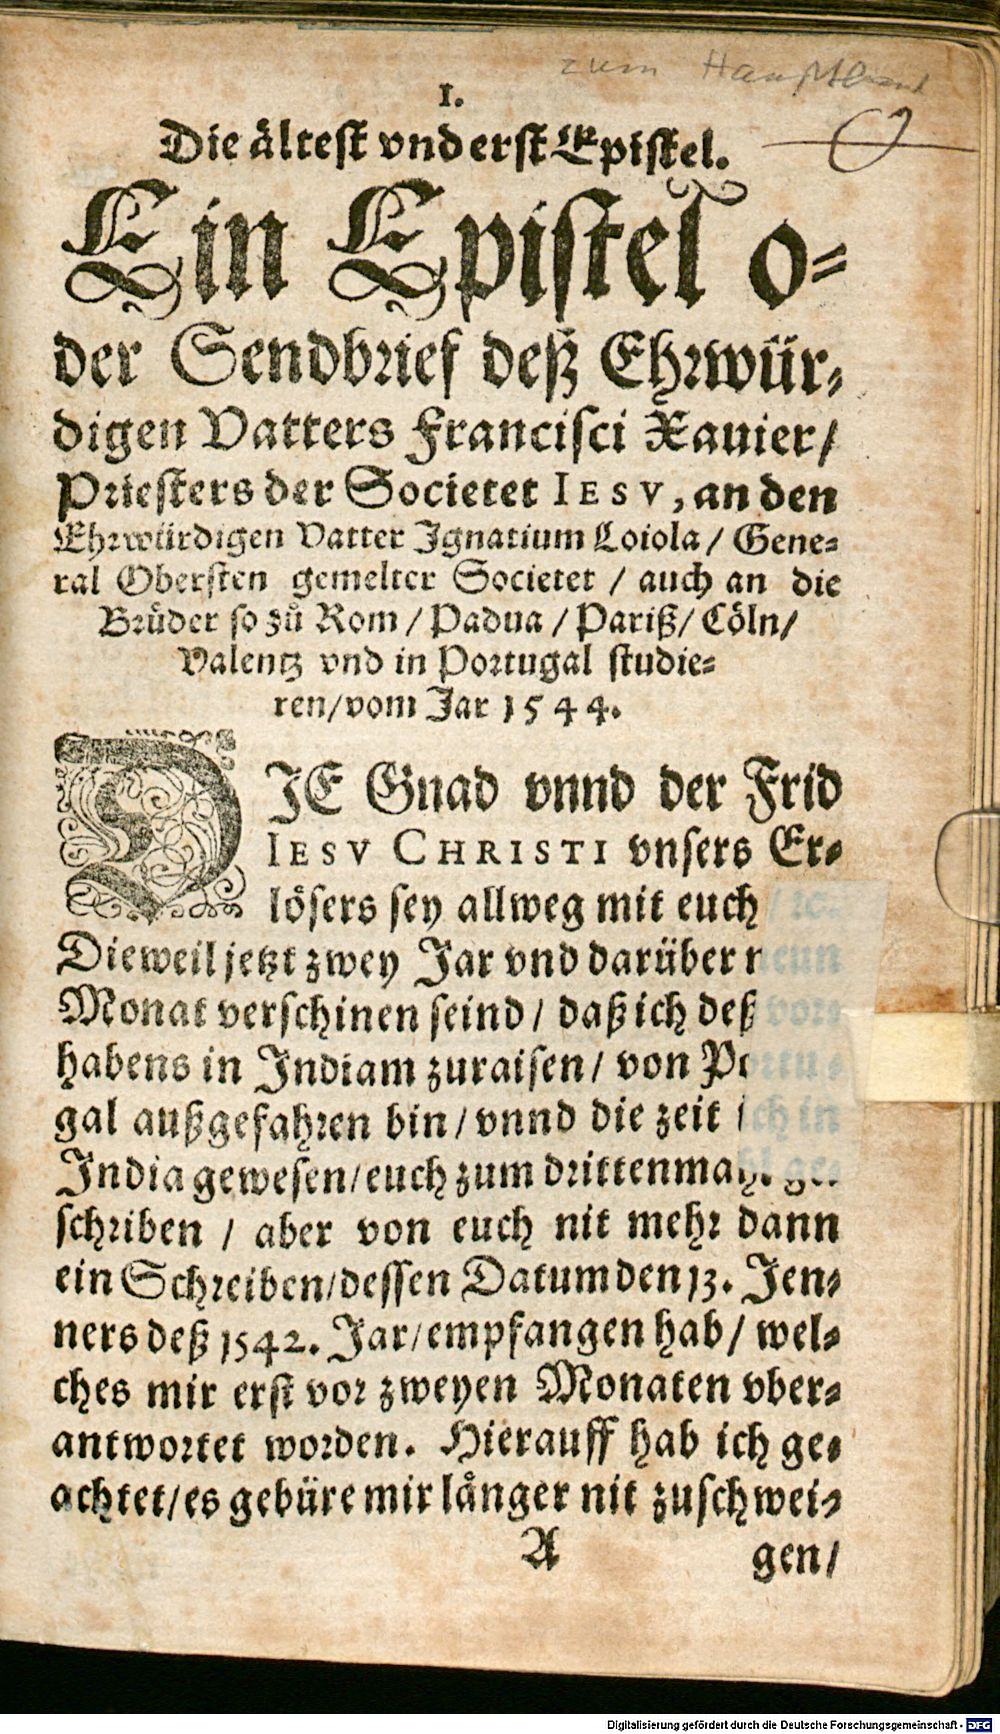 zum Hauptband
I.
Die ältest vnd erst Epistel.
Ein Epistel o-
der Sendbrief deß Ehrwür-
digen Vatters Francisci Xauier/
Priesters der Societet IESV, an den
Ehrwürdigen Vatter Ignatium Loiola/ Gene-
ral Obersten gemelter Societet / auch an die
Brüder so zů Rom / Padua / Pariß/ Cöln/
Valentz vnd in Portugal studie-
ren/vom Jar 1544.
DIE Gnad vnnd der Frid
IESV CHRISTI vnsers Er-
lösers sey allweg mit euch / ꝛc.
Dieweil jetzt zwey Jar vnd darüber neun
Monat verschinen seind / daß ich deß vor-
habens in Indiam zuraisen / von Portu-
gal außgefahren bin / vnnd die zeit ich in
India gewesen/euch zum drittenmahl ge-
schriben / aber von euch nit mehr dann
ein Schreiben/dessen Datum den 13. Jen-
ners deß 1542. Jar/empfangen hab / wel-
ches mir erst vor zweyen Monaten vber-
antwortet worden. Hierauff hab ich ge-
achtet/es gebüre mir länger nit zuschwei-
A gen/
Digitalisierung gefördert durch die Deutsche Forschungsgemeinschaft - DFG